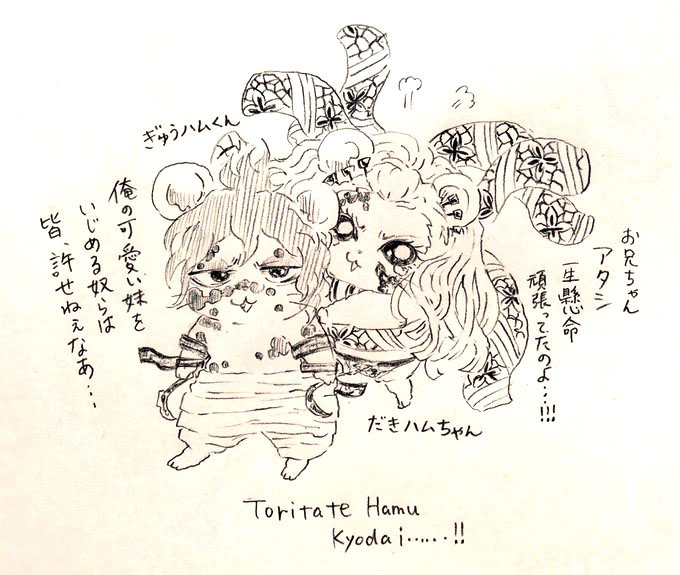 ぎゅうハムくん
俺の可愛い妹を
いじめる奴らは
皆、許せねぇなあ…
お兄ちゃん
アタシ
一生懸命
頑張ってたのよ…!!!
だきハムちゃん
Toritate Hamu
Kyodai……!!